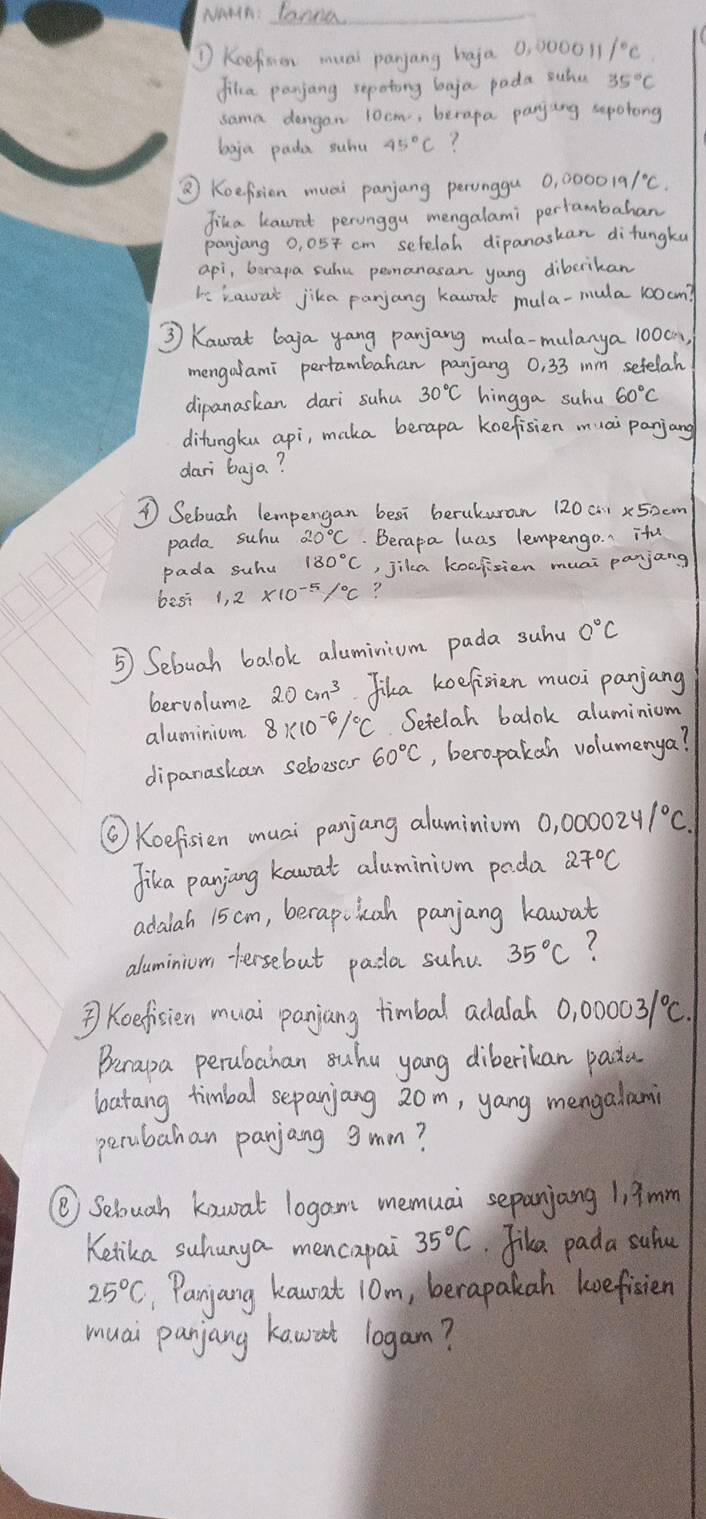 NAMA: Panna
① Koefisien muai panjang baja 0,000011/°C.
Jika panjang sepotong baja pada suhu 35°C
sama dengan 10cm, berapa panjang sepotong
baja pada suhu 45°C?
② Koefisien muai panjang perunggu 0,000019/°C.
Jika kawat perunggu mengalami pertambahan
panjang 0,057 cm setelah dipanaskan di tungku
api, berapa suhu pemanasan yang diberikan
ke kawat jika panjang kawat mula-mula 100cm?
③ Kawat baja yang panjang mula-mulanya 100cm,
mengalami pertambahan panjang 0,33 mm setelah
dipanaskan dari suhu 30°C hingga suhu 60°C
ditungku api, maka berapa koefisien muai panjang
dari baja?
④ Sebuah lempengan besi berukuran 120 cm x 50cm
pada suhu 20°C. Berapa luas lempengan itu
pada suhu 180°C, jika koefisien muai panjang
besi 1,2 x10⁻⁵/°C?
⑤ Sebuah balok aluminium pada suhu 0°C
bervolume 20 cm³. Jika koefisien muai panjang
aluminium 8x10⁻⁶/°C. Setelah balok aluminium
dipanaskan sebesar 60°C, berapakah volumenya?
⑥ Koefisien muai panjang aluminium 0,000024/°C.
Jika panjang kawat aluminium pada 27°C
adalah 15 cm, berapakah panjang kawat
aluminium tersebut pada suhu 35°C?
⑦ Koefisien muai panjang timbal adalah 0,00003/°C.
Berapa perubahan suhu yang diberikan pada
batang timbal sepanjang 20m, yang mengalami
perubahan panjang 9 mm?
⑧ Sebuah kawat logam memuai sepanjang 1,7mm
Ketika suhunya mencapai 35°C. Jika pada suhu
25°C, Panjang kawat 10m, berapakah koefisien
muai panjang kawat logam?